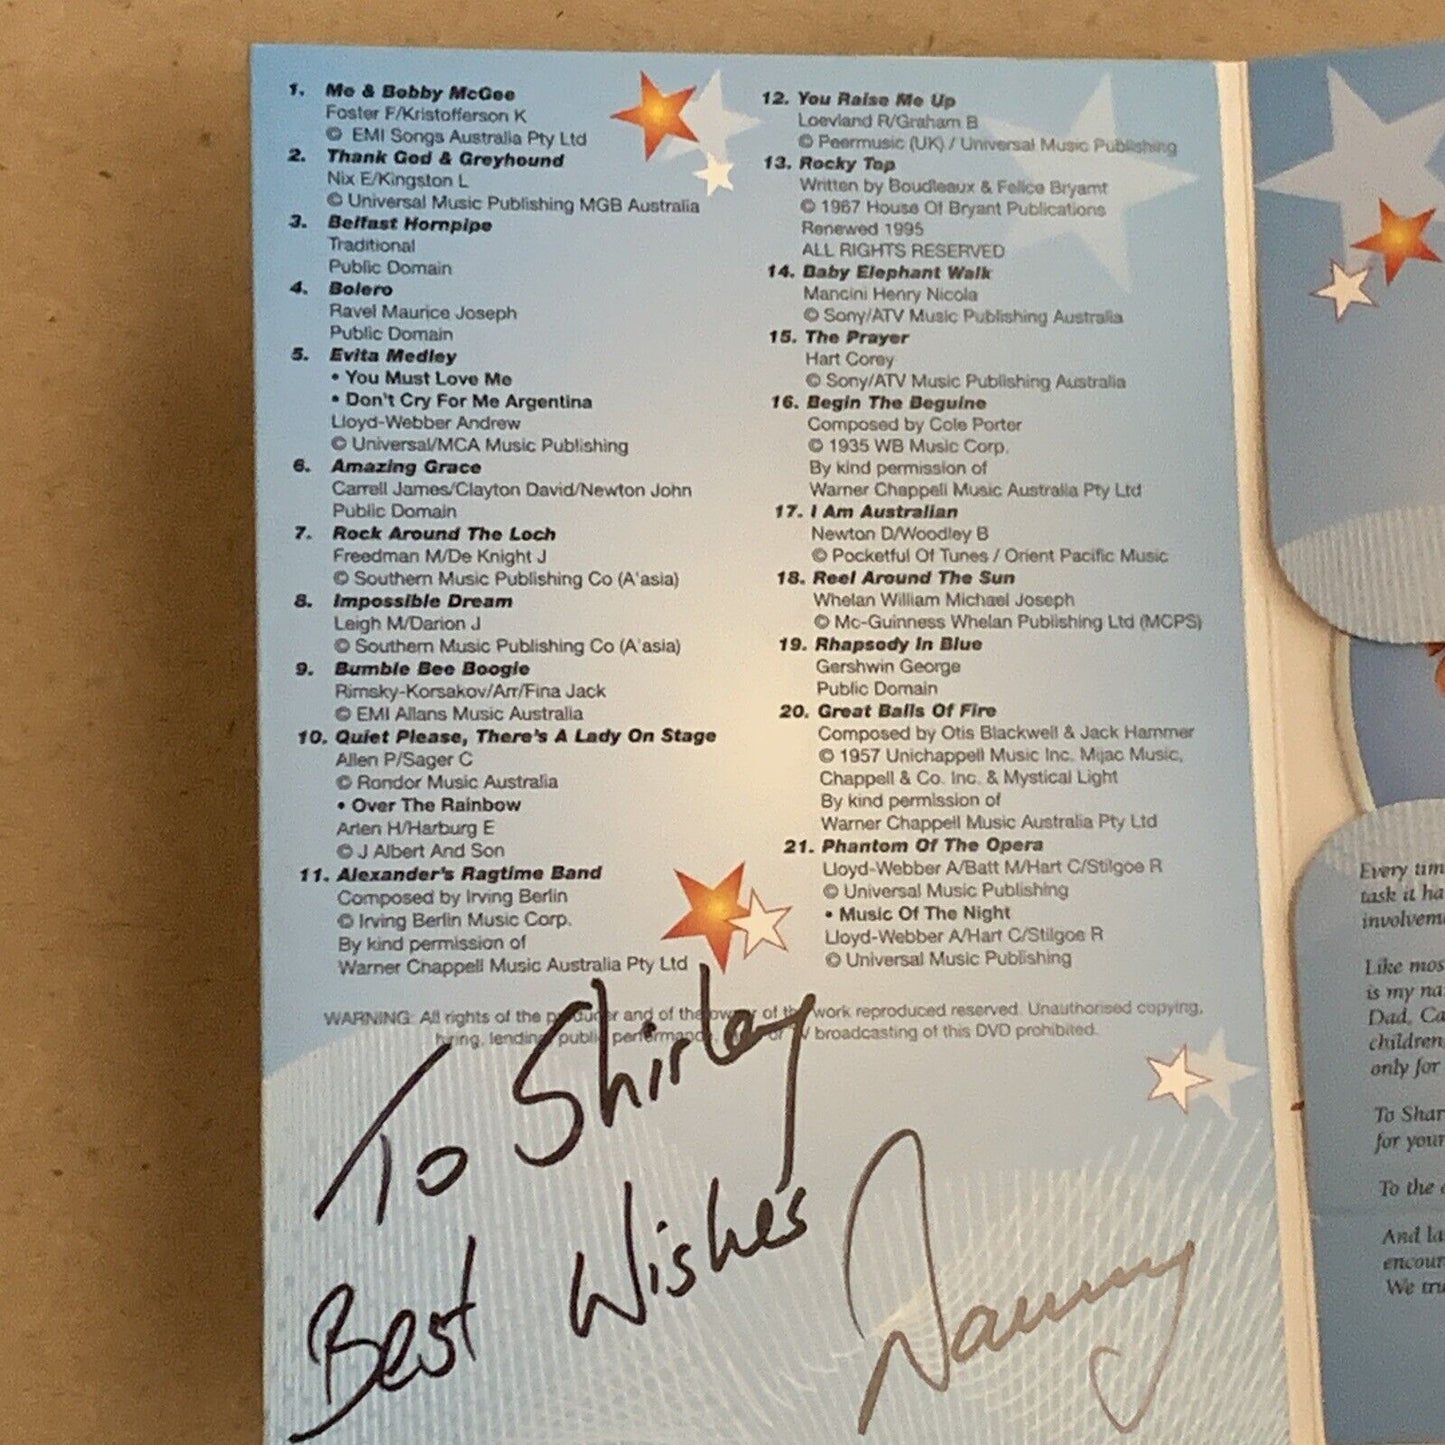 1. Me & Bobby McGee
Foster F/Kristofferson K
© EMI Songs Australia Pty Ltd
2. Thank God & Greyhound
Nix E/Kingston L
© Universal Music Publishing MGB Australia
3. Belfast Hornpipe
Traditional
Public Domain
4. Bolero
Ravel Maurice Joseph
Public Domain
5. Evita Medley
• You Must Love Me
• Don't Cry For Me Argentina
Lloyd-Webber Andrew
© Universal/MCA Music Publishing
6. Amazing Grace
Carrell James/Clayton David/Newton John
Public Domain
7. Rock Around The Loch
Freedman M/De Knight J
© Southern Music Publishing Co (A'asia)
8. Impossible Dream
Leigh M/Darion J
© Southern Music Publishing Co (A'asia)
9. Bumble Bee Boogie
Rimsky-Korsakov/Arr/Fina Jack
© EMI Allans Music Australia
10. Quiet Please, There's A Lady On Stage
Allen P/Sager C
© Rondor Music Australia
• Over The Rainbow
Arlen H/Harburg E
© J Albert And Son
11. Alexander's Ragtime Band
Composed by Irving Berlin
© Irving Berlin Music Corp.
By kind permission of
Warner Chappell Music Australia Pty Ltd
12. You Raise Me Up
Loevland R/Graham B
© Peermusic (UK) / Universal Music Publishing
13. Rocky Top
Written by Boudleaux & Felice Bryamt
© 1967 House Of Bryant Publications
Renewed 1995
ALL RIGHTS RESERVED
14. Baby Elephant Walk
Mancini Henry Nicola
© Sony/ATV Music Publishing Australia
15. The Prayer
Hart Corey
© Sony/ATV Music Publishing Australia
16. Begin The Beguine
Composed by Cole Porter
© 1935 WB Music Corp.
By kind permission of
Warner Chappell Music Australia Pty Ltd
17. I Am Australian
Newton D/Woodley B
© Pocketful Of Tunes / Orient Pacific Music
18. Reel Around The Sun
Whelan William Michael Joseph
© Mc-Guinness Whelan Publishing Ltd (MCPS)
19. Rhapsody In Blue
Gershwin George
Public Domain
20. Great Balls Of Fire
Composed by Otis Blackwell & Jack Hammer
© 1957 Unichappell Music Inc. Mijac Music,
Chappell & Co. Inc. & Mystical Light
By kind permission of
Warner Chappell Music Australia Pty Ltd
21. Phantom Of The Opera
Lloyd-Webber A/Batt M/Hart C/Stilgoe R
© Universal Music Publishing
• Music Of The Night
Lloyd-Webber A/Hart C/Stilgoe R
© Universal Music Publishing
WARNING: All rights of the producer and of the owner of the work reproduced reserved. Unauthorised copying,
hiring, lending, public performance, broadcasting of this DVD prohibited.
To Shirley
Best Wishes
Every tim
task it ha
involvem
Like mos
is my na
Dad, Ca
children
only for
To Shar
for your
To the
And la
encour
We tru